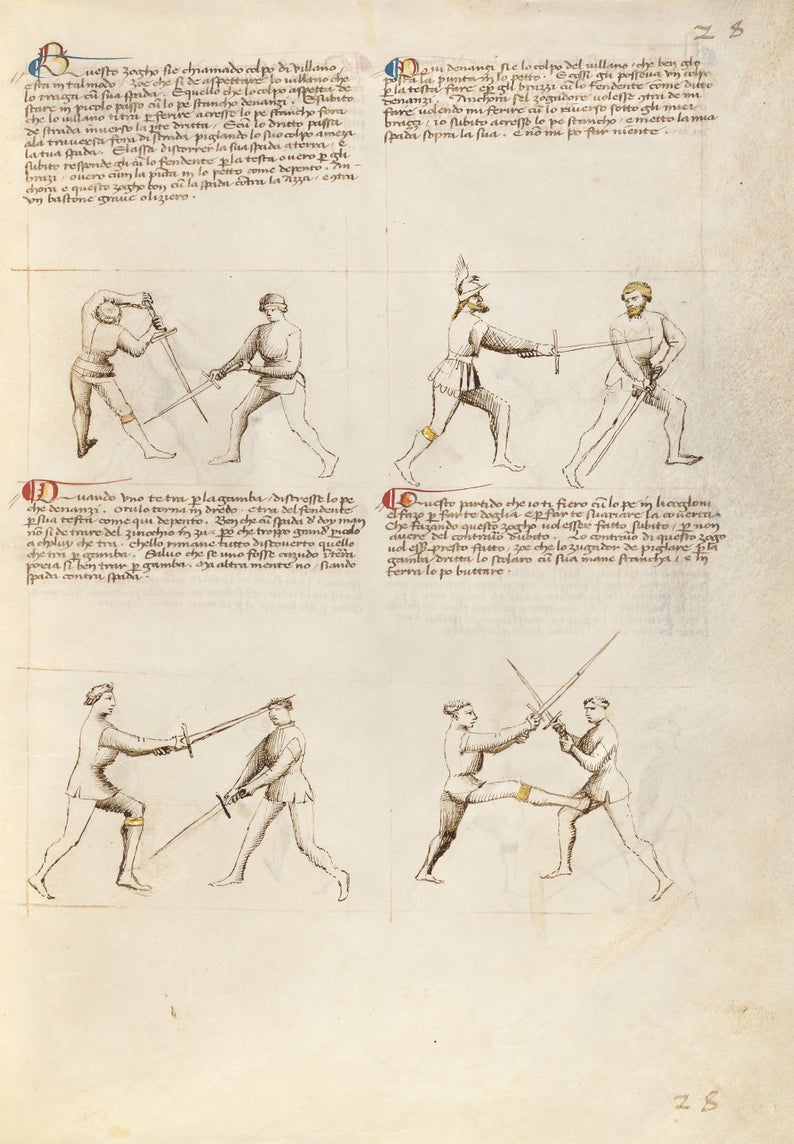 28
Questo zogho sie chiamado colpo di villano,
e sta in tal modo, zoe che si de aspettare lo villano che
lo traga cum sua spada. E quello che lo colpo aspetta de
stare in picolo passo cum lo pe stancho denanzi. E subito
che lo villano ti tra per ferire acresse lo pe stancho fora
de strada inverso la parte dritta. E cum lo dritto passa
ala traversa fora di strada pigliando lo suo colpo a meza
la tua spada. E lassa discorrer la sua spada a terra, e
subito responde gli cum lo fendente per la testa overo per gli
brazi, overo cum la punta in lo petto come depento. An-
chora e questo zogho bon cum la spada contra la azza, contra
un bastone grave o liziero.
Qui denanzi si e lo colpo del villano, che ben glo
posta la punta in lo petto. E cossi gli posseva un colpo
per la testa fare e per gli brazzi cum lo fendente come ditto
denanzi. Anchora sel zogadore volesse contra de mi
fare volendo mi ferire cum lo riverso sotto gli miei
brazzi, io subito acresso lo pe stancho, e metto la mia
spada sopra la sua. e non mi po far niente.
Quando uno te tra per la gamba, discresse lo pe
che denanzi. o tu lo torna in dredo, e tra del fendente
per sua testa come qui depento. Ben che cum spada di doy man
non si de trare del zinochio in zu. per che troppo grand periculo
a choluy che tra. chello rimane tutto discoverto quello
che tra per gamba. Salvo che se uno fosse cazudo in terra
poria si ben trar per gamba. Ma altra mente no, siando
spada contra spada.
Questo partido che io ti fiero cum lo pe in li cogloni
el fazo per farte doglia e per farte svariare la coverta.
Che fazando questo zogho vol essere fatto subito, per non
avere del contrario dubito. Lo contrario di questo zogo
vol esser presto fatto, zoe che lo zugador de piglare per la
gamba dritta lo scolaro cum sua mane stancha, e in
terra lo po buttare.
28